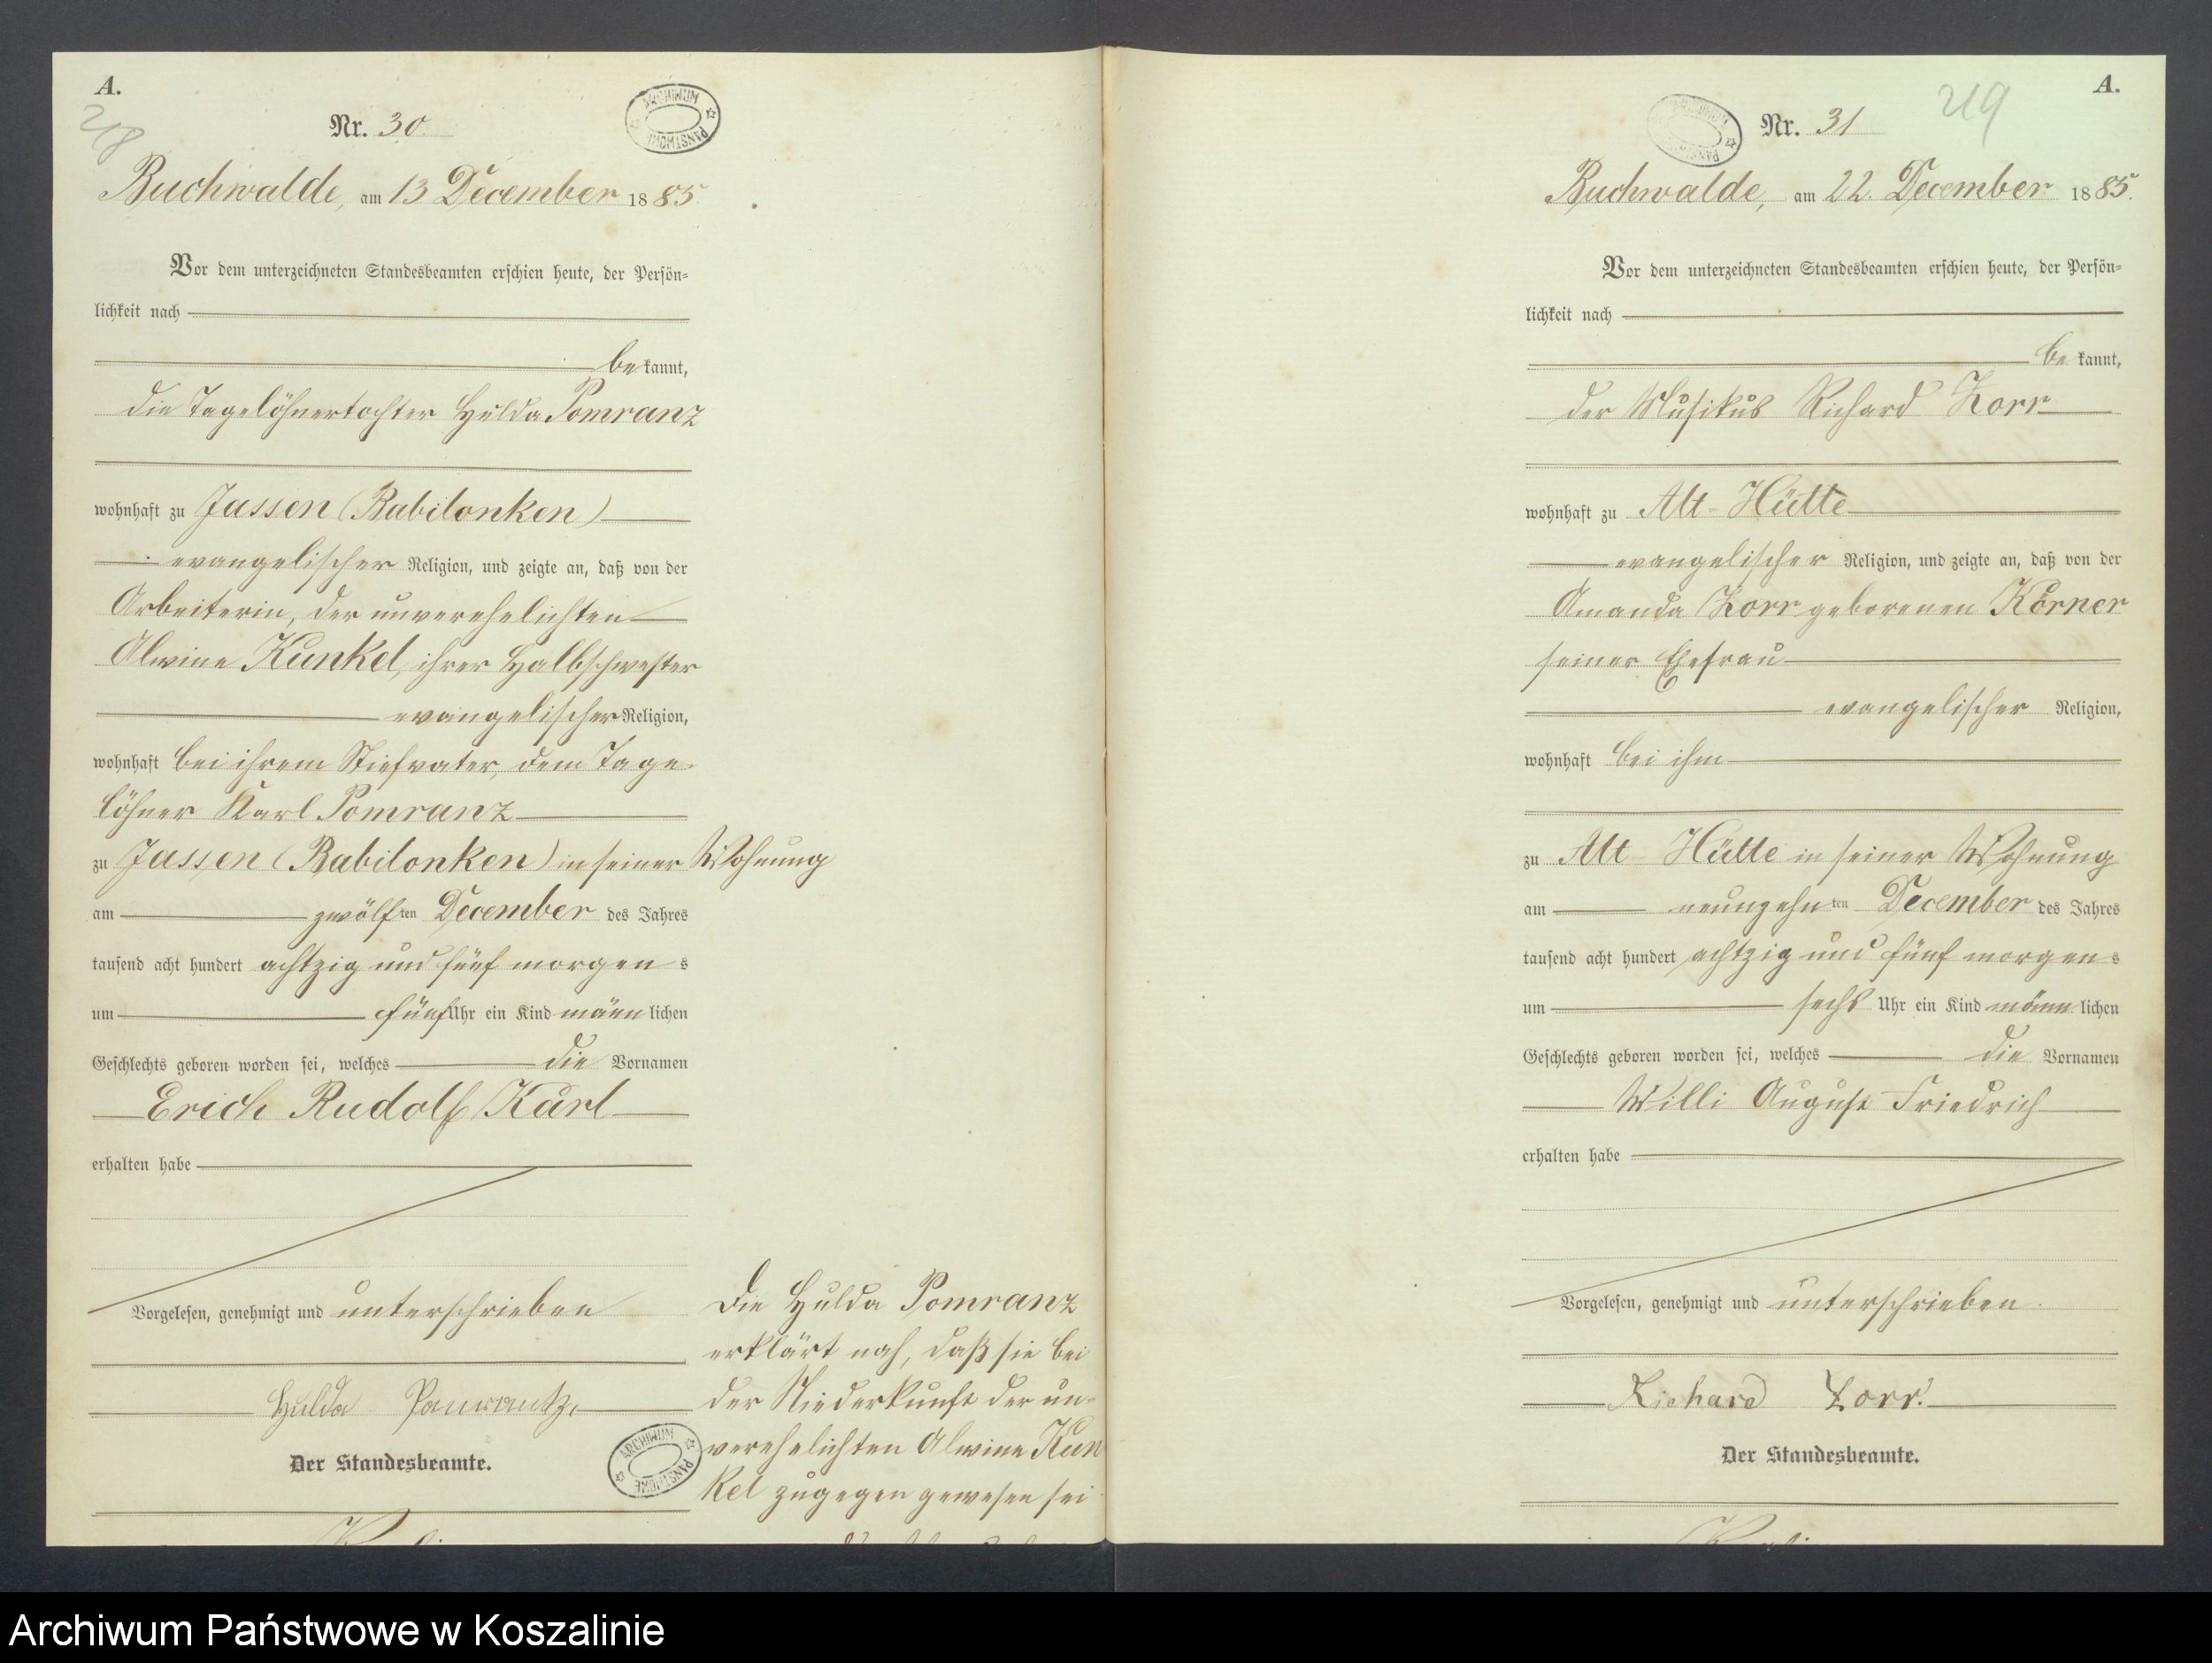 A.
218
Nr. 30.
ARCHIWUM PAŃSTWOWE
Buchwalde, am 13 December 1885.
Vor dem unterzeichneten Standesbeamten erschien heute, der Persön-
lichkeit nach
be kannt,
die Tagelöhnertochter Hulda Pomranz
wohnhaft zu Jassen (Babilonken)
evangelischer Religion, und zeigte an, daß von der
Arbeiterin, der unverehelichten
Alwine Kunkel, ihrer Halbschwester
evangelischer Religion,
wohnhaft bei ihrem Stiefvater, dem Tage-
löhner Karl Pomranz
zu Jassen (Babilonken) in seiner Wohnung
am zwölf ten December des Jahres
tausend acht hundert achtzig und fünf morgen s
um fünf Uhr ein Kind männ lichen
Geschlechts geboren worden sei, welches die Vornamen
Erich Rudolf Karl
erhalten habe
Vorgelesen, genehmigt und unterschrieben
Hulda Pomrantz.
Der Standesbeamte.
ARCHIWUM PAŃSTWOWE
Die Hulda Pomranz
erklärt noch, daß sie bei
der Niederkunft der un-
verehelichten Alwine Kun
kel zugegen gewesen sei
A.
219
ARCHIWUM PAŃSTWOWE
Nr. 31
Buchwalde, am 22. December 1885.
Vor dem unterzeichneten Standesbeamten erschien heute, der Persön-
lichkeit nach
be kannt,
der Musikus Richard Zorr
wohnhaft zu Alt-Hütte
evangelischer Religion, und zeigte an, daß von der
Amanda Zorr geborenen Körner
seiner Ehefrau
evangelischer Religion,
wohnhaft bei ihm
zu Alt-Hütte in seiner Wohnung
am neunzehn ten December des Jahres
tausend acht hundert achtzig und fünf morgen s
um sechs Uhr ein Kind männ lichen
Geschlechts geboren worden sei, welches die Vornamen
Willi August Friedrich
erhalten habe
Vorgelesen, genehmigt und unterschrieben.
Richard Zorr.
Der Standesbeamte.
Archiwum Państwowe w Koszalinie